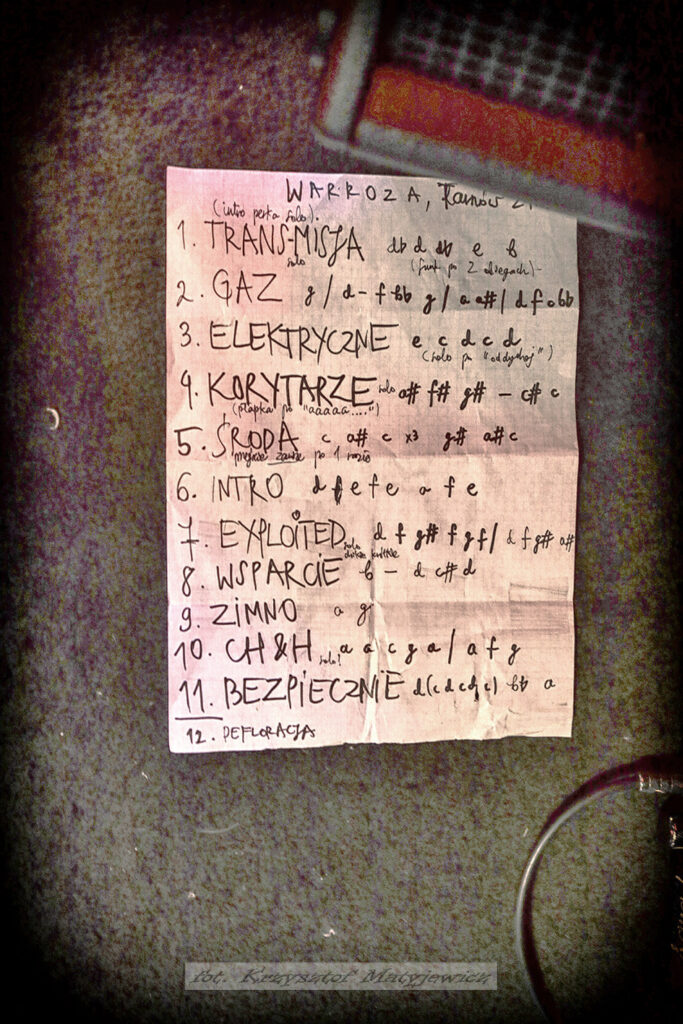 WARROZA,
(intro perka solo).
1. TRANS-MISJA db d db e b
solo
2. GAZ g / d - f bb g / a a# / d f a bb
3. ELEKTRYCZNE e c d c d
(solo po "oddychaj")
4. KORYTARZE solo a# f# g# - c# c
(stąpka po "aaaaa....")
5. ŚRODA c a# c x3 g# a# c
zawsze po 1 razie
6. INTRO d f e f e a f e
7. EXPLOITED d f g# f g f / d f g# a#
solo
8. WSPARCIE b - d c# d
9. ZIMNO a g
10. CH&H solo! a a c g a / a f g
11. BEZPIECZNIE bb a
12. DEFLORACJA
fot. Krzysztof Matyjewicz